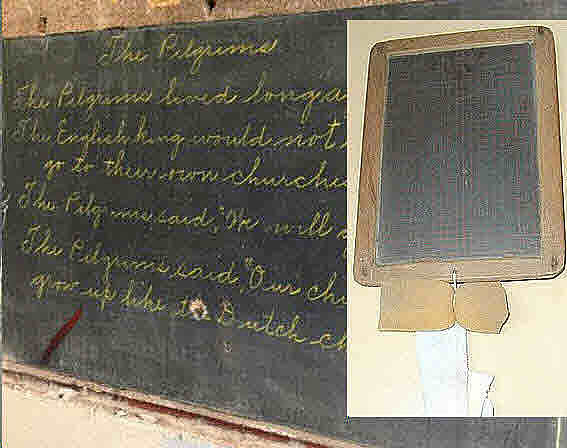 The Pilgrims
The Pilgrims lived long a
The English king would not
go to their own churche
The Pilgrims said, "We will
The Pilgrims said, "Our chi
grow up like Dutch ch